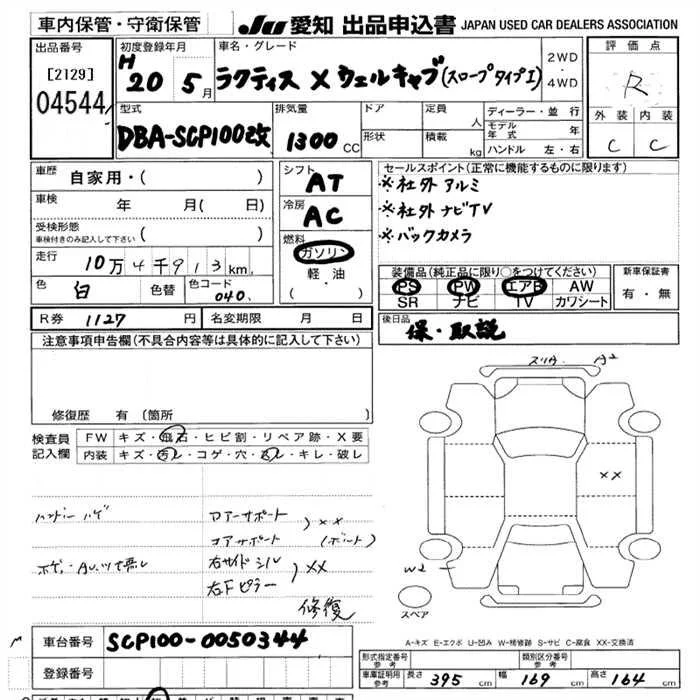 車内保管・守衛保管
JU 愛知 出品申込書 JAPAN USED CAR DEALERS ASSOCIATION
出品番号
[2129]
04544
初度登録年月
H 20 5月
車名・グレード
ラクティス X ウェルキャブ(スロープタイプI)
2WD
4WD
評価点
R
外装 内装
C C
型式
DBA-SCP100改
排気量
1300 CC
ドア
形状
定員 人
積載 kg
ディーラー・並行
モデル年式 年
ハンドル 左・右
車歴 自家用・( )
車検 年 月( 日)
受検形態
車検付きのみ記入して下さい ( )
走行 10万4千913km
色 白 色替 色コード 040
シフト AT
冷房 AC
燃料
ガソリン
軽油
( ・ )
セールスポイント(正常に機能するものに限ります)
※社外アルミ
※社外ナビTV
※バックカメラ
装備品(純正品に限り○をつけてください)
PS PW エアB AW
SR ナビ TV カワシート
新車保証書
有・無
R券 1127 円 名変期限 月 日
後日品
保・取説
注意事項申告欄(不具合内容等は具体的に記入して下さい)
修復歴 有 (箇所
検査員記入欄
FW キズ・飛石・ヒビ割・リペア跡・X要
内装 キズ・汚レ・コゲ・穴・スレ・キレ・破レ
ハンドルハゲ
コアサポート
)××
(ボルト)
右サイドシル
右Fピラー
)××
修復
スリA A2
××
W2
スペア
A-キズ E-エクボ U-凹み W-補修跡 S-サビ C-腐食 XX-交換済
車台番号 SCP100-0050344
登録番号
形式指定番号
参考
類別区分番号
参考
車庫証明用
参考
長さ 395 cm 幅 169 cm 高さ 164 cm